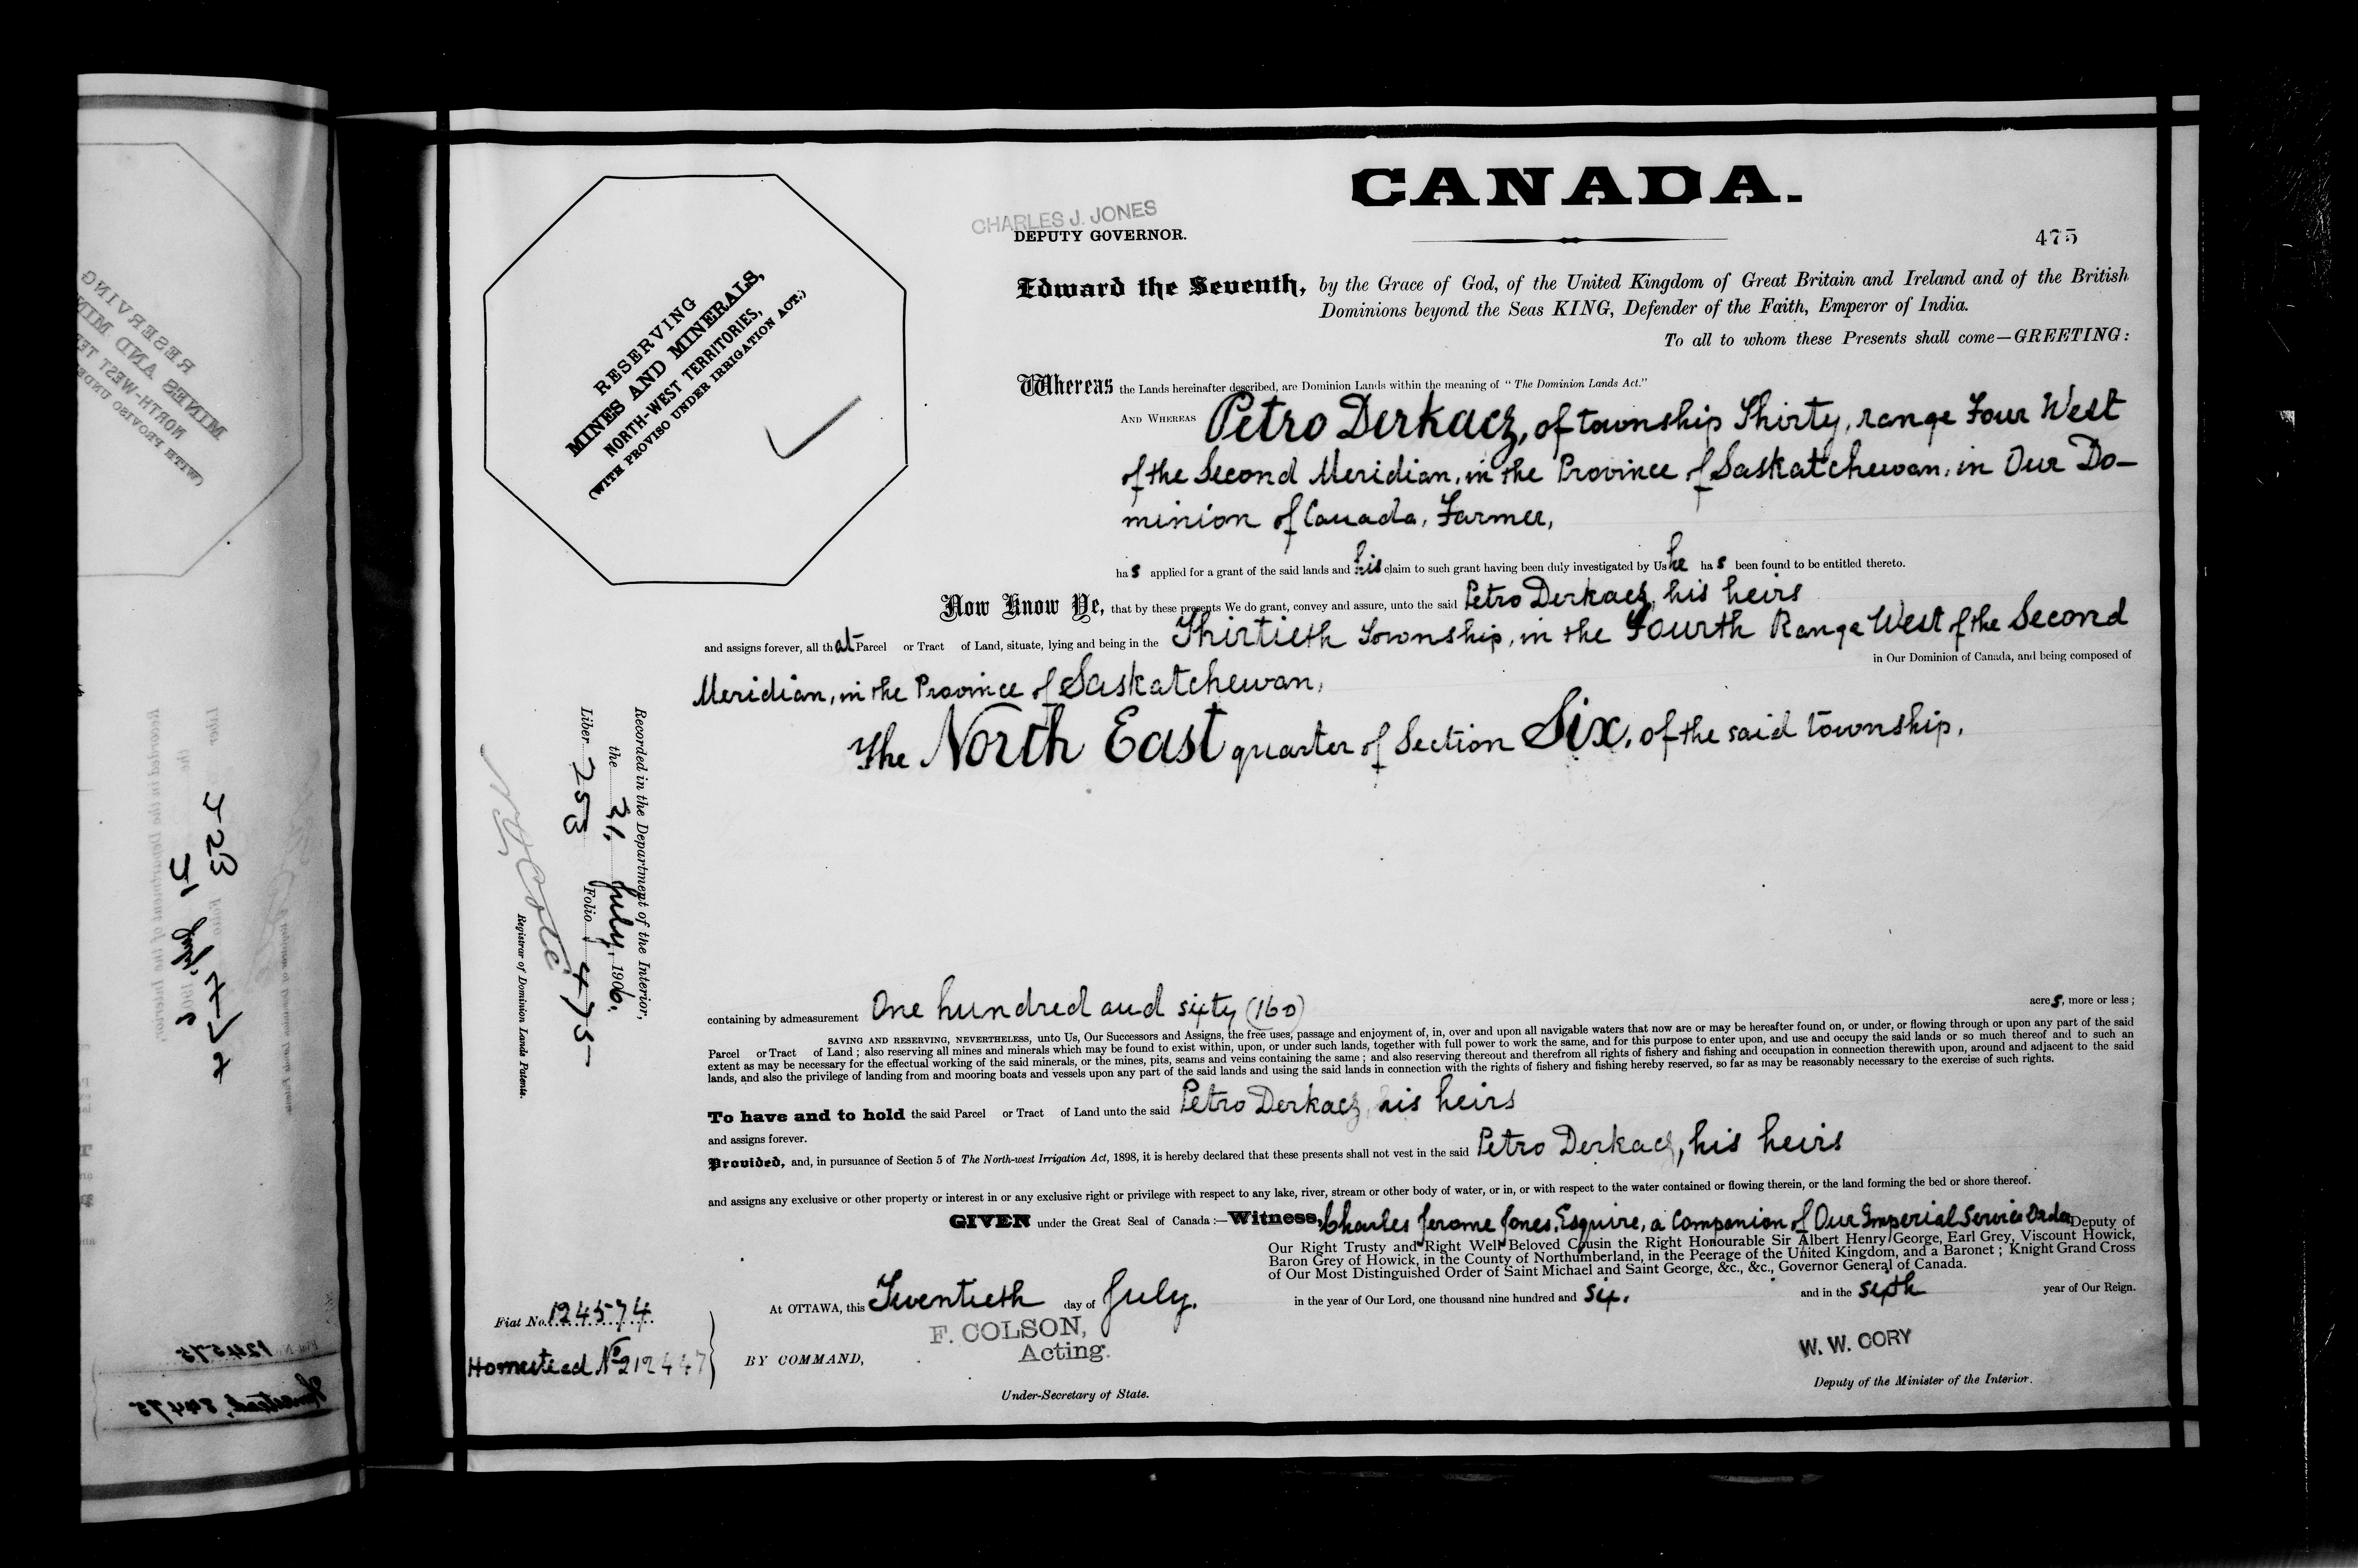 CANADA.
CHARLES J. JONES
DEPUTY GOVERNOR.
475
RESERVING
MINES AND MINERALS,
NORTH-WEST TERRITORIES,
(WITH PROVISO UNDER IRRIGATION ACT.)
Edward the Seventh, by the Grace of God, of the United Kingdom of Great Britain and Ireland and of the British
Dominions beyond the Seas KING, Defender of the Faith, Emperor of India.
To all to whom these Presents shall come—GREETING:
Whereas the Lands hereinafter described, are Dominion Lands within the meaning of "The Dominion Lands Act."
AND WHEREAS Petro Derkacz, of township Thirty, range Four West
of the Second Meridian, in the Province of Saskatchewan, in Our Do-
minion of Canada, Farmer,
has applied for a grant of the said lands and his claim to such grant having been duly investigated by Us he has been found to be entitled thereto.
Now Know Ye, that by these presents We do grant, convey and assure, unto the said Petro Derkacz, his heirs
and assigns forever, all that Parcel or Tract of Land, situate, lying and being in the Thirtieth Township, in the Fourth Range West of the Second
in Our Dominion of Canada, and being composed of
Meridian, in the Province of Saskatchewan,
The North East quarter of Section Six, of the said township,
Recorded in the Department of the Interior,
the 31, July, 1906.
Liber 253 Folio 475
Registrar of Dominion Lands Patents.
containing by admeasurement One hundred and sixty (160) acres, more or less;
SAVING AND RESERVING, NEVERTHELESS, unto Us, Our Successors and Assigns, the free uses, passage and enjoyment of, in, over and upon all navigable waters that now are or may be hereafter found on, or under, or flowing through or upon any part of the said
Parcel or Tract of Land; also reserving all mines and minerals which may be found to exist within, upon, or under such lands, together with full power to work the same, and for this purpose to enter upon, and use and occupy the said lands or so much thereof and to such an
extent as may be necessary for the effectual working of the said minerals, or the mines, pits, seams and veins containing the same; and also reserving thereout and therefrom all rights of fishery and fishing and occupation in connection therewith upon, around and adjacent to the said
lands, and also the privilege of landing from and mooring boats and vessels upon any part of the said lands and using the said lands in connection with the rights of fishery and fishing hereby reserved, so far as may be reasonably necessary to the exercise of such rights.
To have and to hold the said Parcel or Tract of Land unto the said Petro Derkacz, his heirs
and assigns forever.
Provided, and, in pursuance of Section 5 of The North-west Irrigation Act, 1898, it is hereby declared that these presents shall not vest in the said Petro Derkacz, his heirs
and assigns any exclusive or other property or interest in or any exclusive right or privilege with respect to any lake, river, stream or other body of water, or in, or with respect to the water contained or flowing therein, or the land forming the bed or shore thereof.
GIVEN under the Great Seal of Canada:—Witness, Charles Jerome Jones, Esquire, a Companion of Our Imperial Service Order, Deputy of
Our Right Trusty and Right Well Beloved Cousin the Right Honourable Sir Albert Henry George, Earl Grey, Viscount Howick,
Baron Grey of Howick, in the County of Northumberland, in the Peerage of the United Kingdom, and a Baronet; Knight Grand Cross
of Our Most Distinguished Order of Saint Michael and Saint George, &c., &c., Governor General of Canada.
At OTTAWA, this Twentieth day of July. in the year of Our Lord, one thousand nine hundred and six. and in the sixth year of Our Reign.
Fiat No. 124574
Homestead No 212447
BY COMMAND,
F. COLSON,
Acting.
Under-Secretary of State.
W. W. CORY
Deputy of the Minister of the Interior.